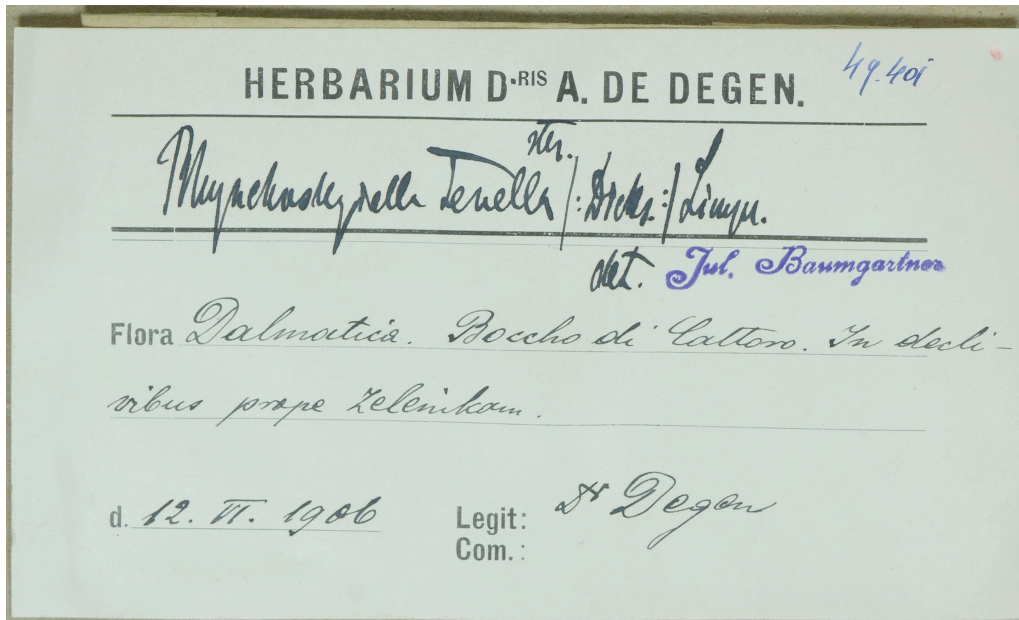 49.401
HERBARIUM D.RIS A. DE DEGEN.
ster.
Rhynchostegiella tenella /:Dicks:/ Limpr.
det. Jul. Baumgartner
Flora Dalmatica. Boccho di Cattoro. In decli-
vibus prope Zelenikam.
d. 12. VI. 1906 Legit: Dr Degen
Com.: